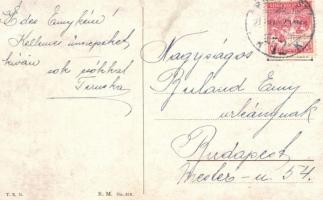 Édes Emykém!
Kellemes ünnepeket
kíván
sok csókkal
Teruska
Nagyságos
Ruland Emy
urleánynak
Budapest
u. 54.
T. S. N.
R. M. No.